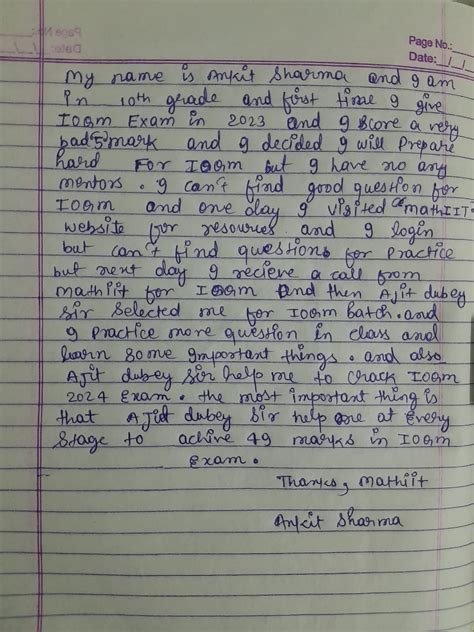 Page No.:
Date: / /
My name is Ankit Sharma and I am
in 10th grade and first time I give
IOQM Exam in 2023 and I score a very
bad "5" mark and I decided I will Prepare
hard For IOQM but I have no any
mentors. I can't find good question for
IOQM and one day I visited MathIIT
website for resources and I login
but can't find questions for Practice
but next day I recieve a call from
Mathiit for IOQM and then Ajit dubey
Sir Selected me for IOQM batch. and
I Practice more question in class and
learn Some Important things. and also
Ajit dubey Sir help me to crack IOQM
2024 Exam. the most important thing is
that Ajit dubey Sir help me at Every
Stage to achive 49 marks in IOQM
Exam.
Thanks, Mathiit
Ankit Sharma